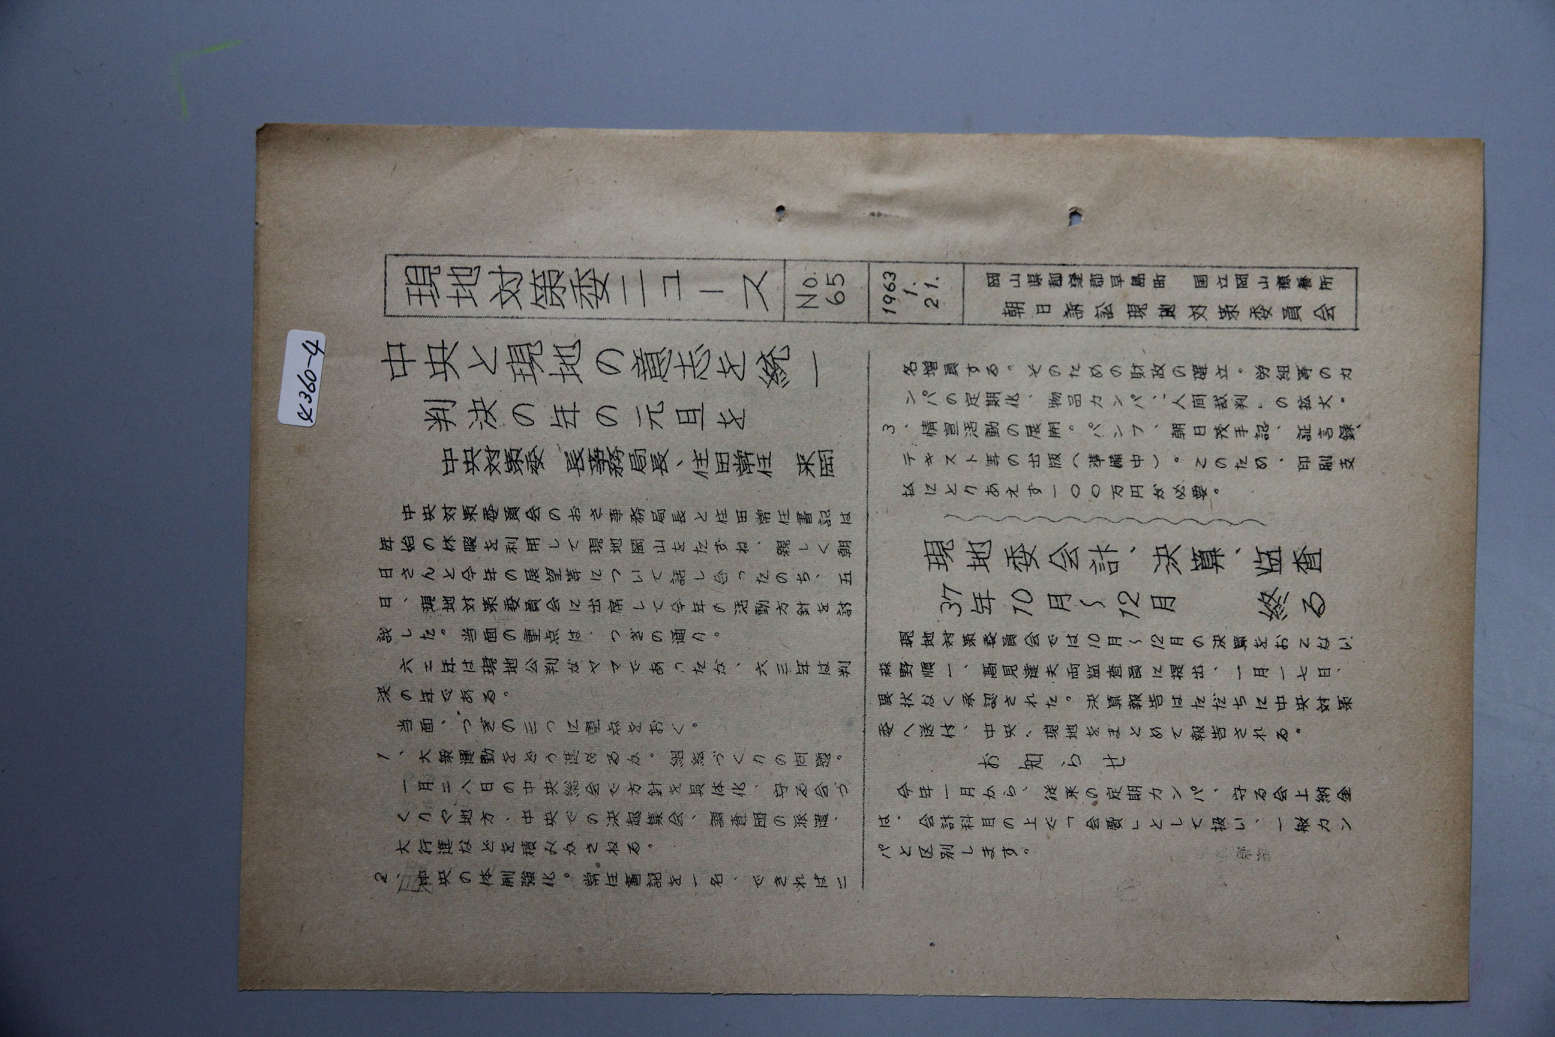 K360-4
現地対策委ニュース
No.
65
1963
1.
21.
岡山県都窪郡早島町 国立岡山療養所
朝日訴訟現地対策委員会
中央と現地の意志を統一
判決の年の元旦を
中央対策委 長事務局長、住田常任 来岡
中央対策委員会のおさ事務局長と住田常任書記は
年始の休暇を利用して現地岡山をたずね、親しく朝
日さんと今年の展望等について話し合ったのち、五
日、現地対策委員会に出席して今年の活動方針を討
議した。当面の重点は、つぎの通り。
六二年は現地公判がヤマであったが、六三年は判
決の年である。
当面、つぎの三つに重点をおく。
1、大衆運動をどう進めるか。組織づくりの問題。
一月二八日の中央総会で方針を具体化、守る会づ
くりや地方、中央での決起集会、調査団の派遣、
大行進などを積みかさねる。
2、中央の体制強化。常任書記を一名、できれば二
名増員する。そのための財政の確立。労組等のカ
ンパの定期化、物品カンパ、「人間裁判」の拡大。
3、情宣活動の展開。パンフ、朝日茂手記、証言録、
テキスト等の出版(準備中)。このため、印刷支
払にとりあえず一〇〇万円が必要。
現地委会計、決算、監査
37年10月〜12月 終る
現地対策委員会では10月〜12月の決算をおこない、
森野順一、高見達夫両監査員に提出、一月一七日、
異状なく承認された。決算報告はただちに中央対策
委へ送付、中央、現地をまとめて報告される。
お知らせ
今年一月から、従来の定期カンパ、守る会上納金
は、会計科目の上で「会費」として扱い、一般カン
パと区別します。